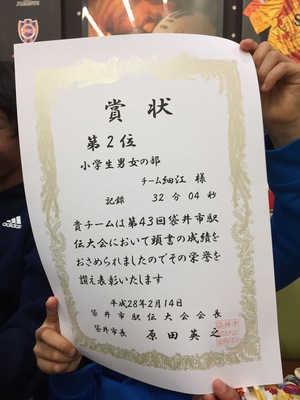 賞状
第2位
小学生男女の部
チーム細江 様
記録 32分04秒
貴チームは第43回袋井市駅
伝大会において頭書の成績を
おさめられましたのでその栄誉を
讃え表彰いたします
平成28年2月14日
袋井市駅伝大会会長
袋井市長 原田英之
adidas